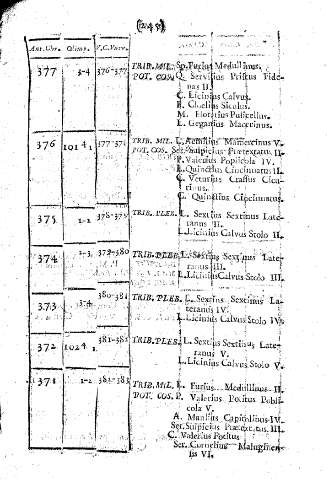 (245)
Ant. Chr. Olimp. V.C. Varr.
377 3-4 376-377 TRIB. MIL. Sp. Furius Medullinus.
POT. COS. Q. Servilius Priscus Fide-
nas II.
C. Licinius Calvus.
P. Cloelius Siculus.
M. Horatius Pulvillus.
L. Geganius Macerinus.
376 101 4 1 377-378 TRIB. MIL. L. Aemilius Mamercinus V.
POT. COS. Ser. Sulpicius Praetextatus II.
P. Valerius Poplicola IV.
L. Quinctius Cincinnatus II.
C. Veturius Crassus Cicu-
rinus.
C. Quinctius Cincinnatus.
375 1-2 378-379 TRIB. PLEB. L. Sextius Sextinus Late-
ranus II.
L. Licinius Calvus Stolo II.
374 2-3 379-380 TRIB. PLEB. L. Sextius Sextinus Late-
ranus III.
L. Licinius Calvus Stolo III.
373 3-4 380-381 TRIB. PLEB. L. Sextius Sextinus La-
teranus IV.
L. Licinius Calvus Stolo IV.
372 102 4 1 381-382 TRIB. PLEB. L. Sextius Sextinus Late-
ranus V.
L. Licinius Calvus Stolo V.
371 1-2 382-383 TRIB. MIL. L. Furius Medullinus II.
POT. COS. P. Valerius Potitus Publi-
cola V.
A. Manlius Capitolinus IV.
Ser. Sulpicius Praetextatus III.
C. Valerius Potitus
Ser. Cornelius Maluginen-
sis VI.